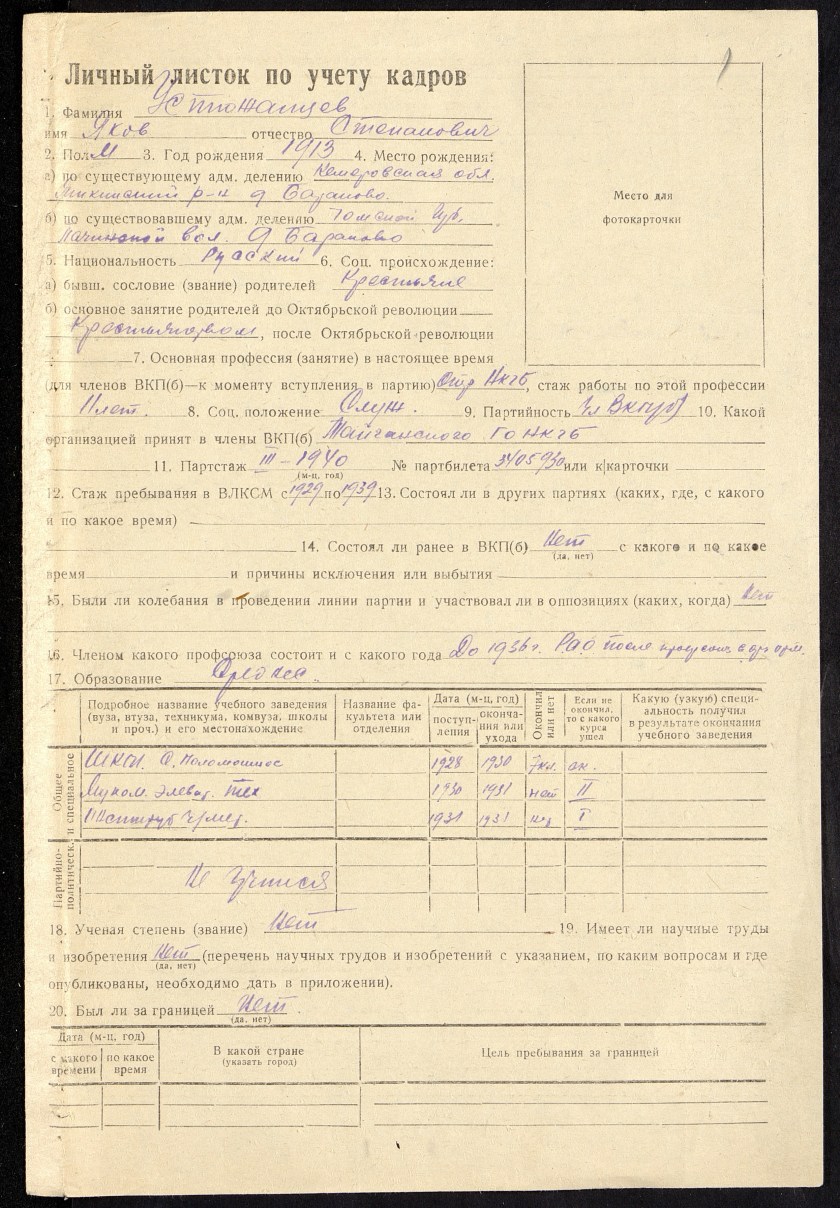 Личный листок по учету кадров
1. Фамилия Устюжанцев
имя Яков отчество Степанович
2. Пол М 3. Год рождения 1913 4. Место рождения:
а) по существующему адм. делению Кемеровская обл.
р-н д Бараново.
б) по существовавшему адм. делению Томской Губ.
вол. д Бараново
5. Национальность Русский 6. Соц. происхождение:
а) бывш. сословие (звание) родителей Крестьяне
б) основное занятие родителей до Октябрьской революции
Крестьянством, после Октябрьской революции
7. Основная профессия (занятие) в настоящее время
(для членов ВКП(б)—к моменту вступления в партию) Опер НКГБ, стаж работы по этой профессии
11 лет. 8. Соц. положение Служ. 9. Партийность Чл ВКП(б) 10. Какой
организацией принят в члены ВКП(б) Тайганского ГО НКГБ
11. Партстаж III–1940 № партбилета 3405930 или к|карточки
(м-ц, год)
12. Стаж пребывания в ВЛКСМ с 1929 по 1939 13. Состоял ли в других партиях (каких, где, с какого
и по какое время)
14. Состоял ли ранее в ВКП(б) Нет с какого и по какое
(да, нет)
время и причины исключения или выбытия
15. Были ли колебания в проведении линии партии и участвовал ли в оппозициях (каких, когда) Нет
16. Членом какого профсоюза состоит и с какого года До 1936 г. РАО после
17. Образование Среднее.
Подробное название учебного заведения (вуза, втуза, техникума, комвуза, школы и проч.) и его местонахождение
Название факультета или отделения
Дата (м-ц, год)
поступления
окончания или ухода
Окончил или нет
Если не окончил, то с какого курса ушел
Какую (узкую) специальность получил в результате окончания учебного заведения
Общее и специальное
ШКМ. С. Поломошное 1928 1930 7кл. ок.
Муком. Элеват. Тех 1930 1931 нет II
Институт Чермет. 1931 1931 I
Партийно-политическ.
Не Учился
18. Ученая степень (звание) Нет 19. Имеет ли научные труды
и изобретения Нет (перечень научных трудов и изобретений с указанием, по каким вопросам и где
(да, нет)
опубликованы, необходимо дать в приложении).
20. Был ли за границей Нет.
(да, нет)
Дата (м-ц, год)
с какого времени
по какое время
В какой стране
(указать город)
Цель пребывания за границей
Место для
фотокарточки